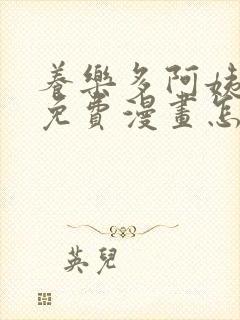 養樂多阿姨
免費漫畫怎
英兒